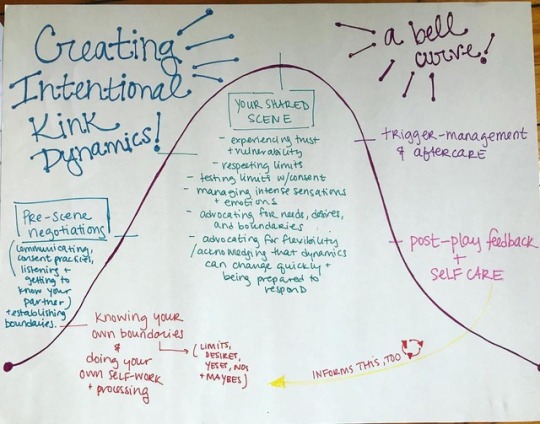 Creating
Intentional
Kink
Dynamics!
a bell
curve!
YOUR SHARED
SCENE
- experiencing trust
+ vulnerability
- respecting limits
- testing limits w/consent
- managing intense sensations
+ emotions
- advocating for needs, desires,
and boundaries
- advocating for flexibility
/acknowledging that dynamics
can change quickly +
being prepared to
respond
trigger-management
& aftercare
Pre-scene
negotiations
(communicating,
consent practices,
listening +
getting to
know your
partner)
+ establishing
boundaries.
- post-play feedback
+
SELF CARE
knowing your
own boundaries
&
doing your
own SELF-WORK
+ processing
(LIMITS,
DESIRES,
YESES, NOS
+ MAYBES)
INFORMS THIS, TOO